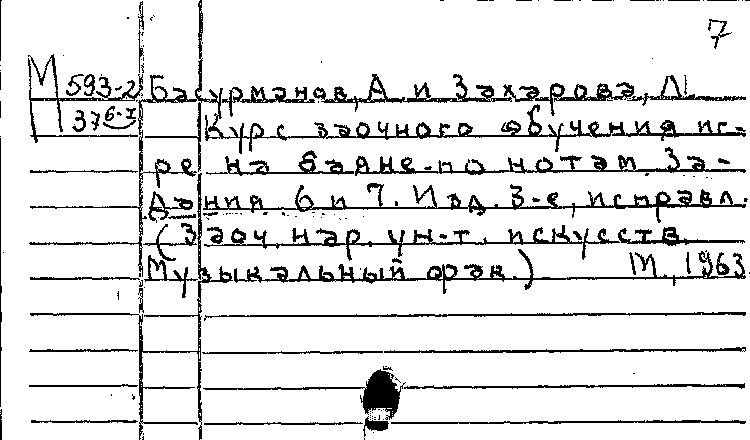 7
М 593-2 Басурманов, А. и Захарова, Л.
376-I Курс заочного обучения иг-
ре на баяне по нотам. За-
дания 6 и 7. Изд. 3-е, исправл.
(Заоч. нар. ун-т. искусств.
Музыкальный фак.) М., 1963